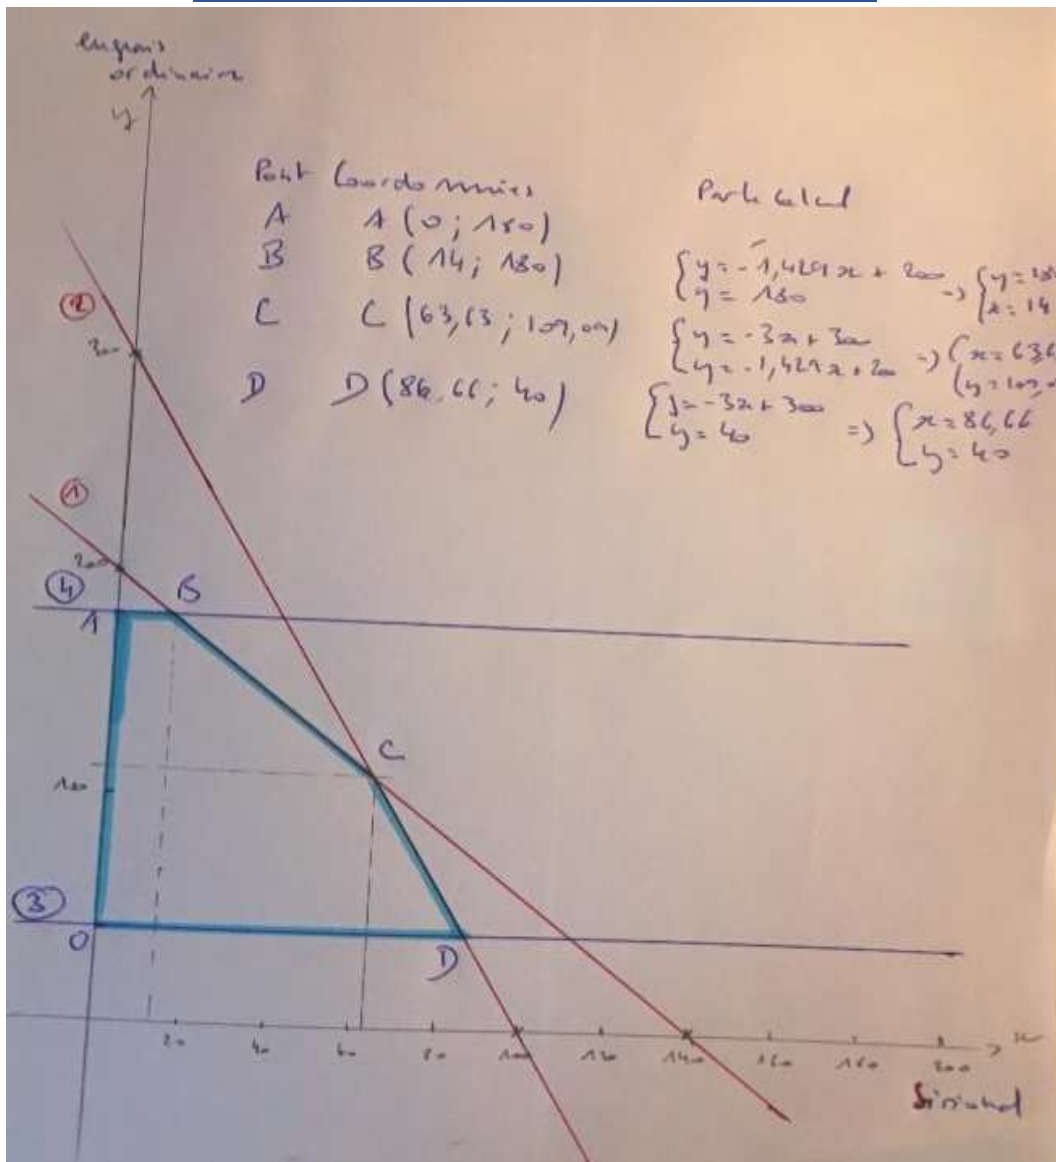 engrais
ordinaire
y
Point Coordonnées
A A (0 ; 180)
B B (14 ; 180)
C C (63,63 ; 109,09)
D D (86,66 ; 40)
{ y = -1,429x + 200
y = 180 => { y = 180
x = 14
{ y = -3x + 300
y = -1,429x + 200 => { x = 63,6
y = 109,0
{ y = -3x + 300
y = 40 => { x = 86,66
y = 40
2
300
1
200
4
B
A
C
100
3
O
D
20 40 60 80 100 120 140 160 180 200 x